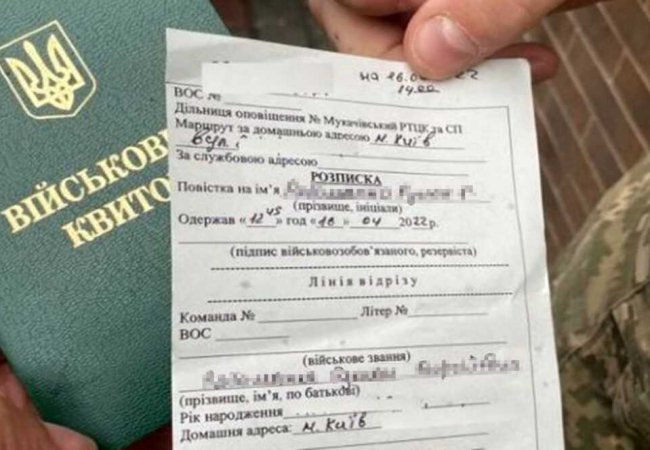 ВІЙСЬКОВ
КВИТО
на 16.0 22
14.00
ВОС №
Дільниця оповіщення № Мукачівський РТЦК та СП
Маршрут за домашньою адресою м. Київ
вул.
За службовою адресою
РОЗПИСКА
Повістка на ім'я
(прізвище, ініціали)
Одержав «12 45» год «16» 04 2022 р.
(підпис військовозобов'язаного, резервіста)
Лінія відрізу
Команда № Літер №
ВОС
(військове звання)
(прізвище, ім'я, по батькові)
Рік народження
Домашня адреса: м. Київ